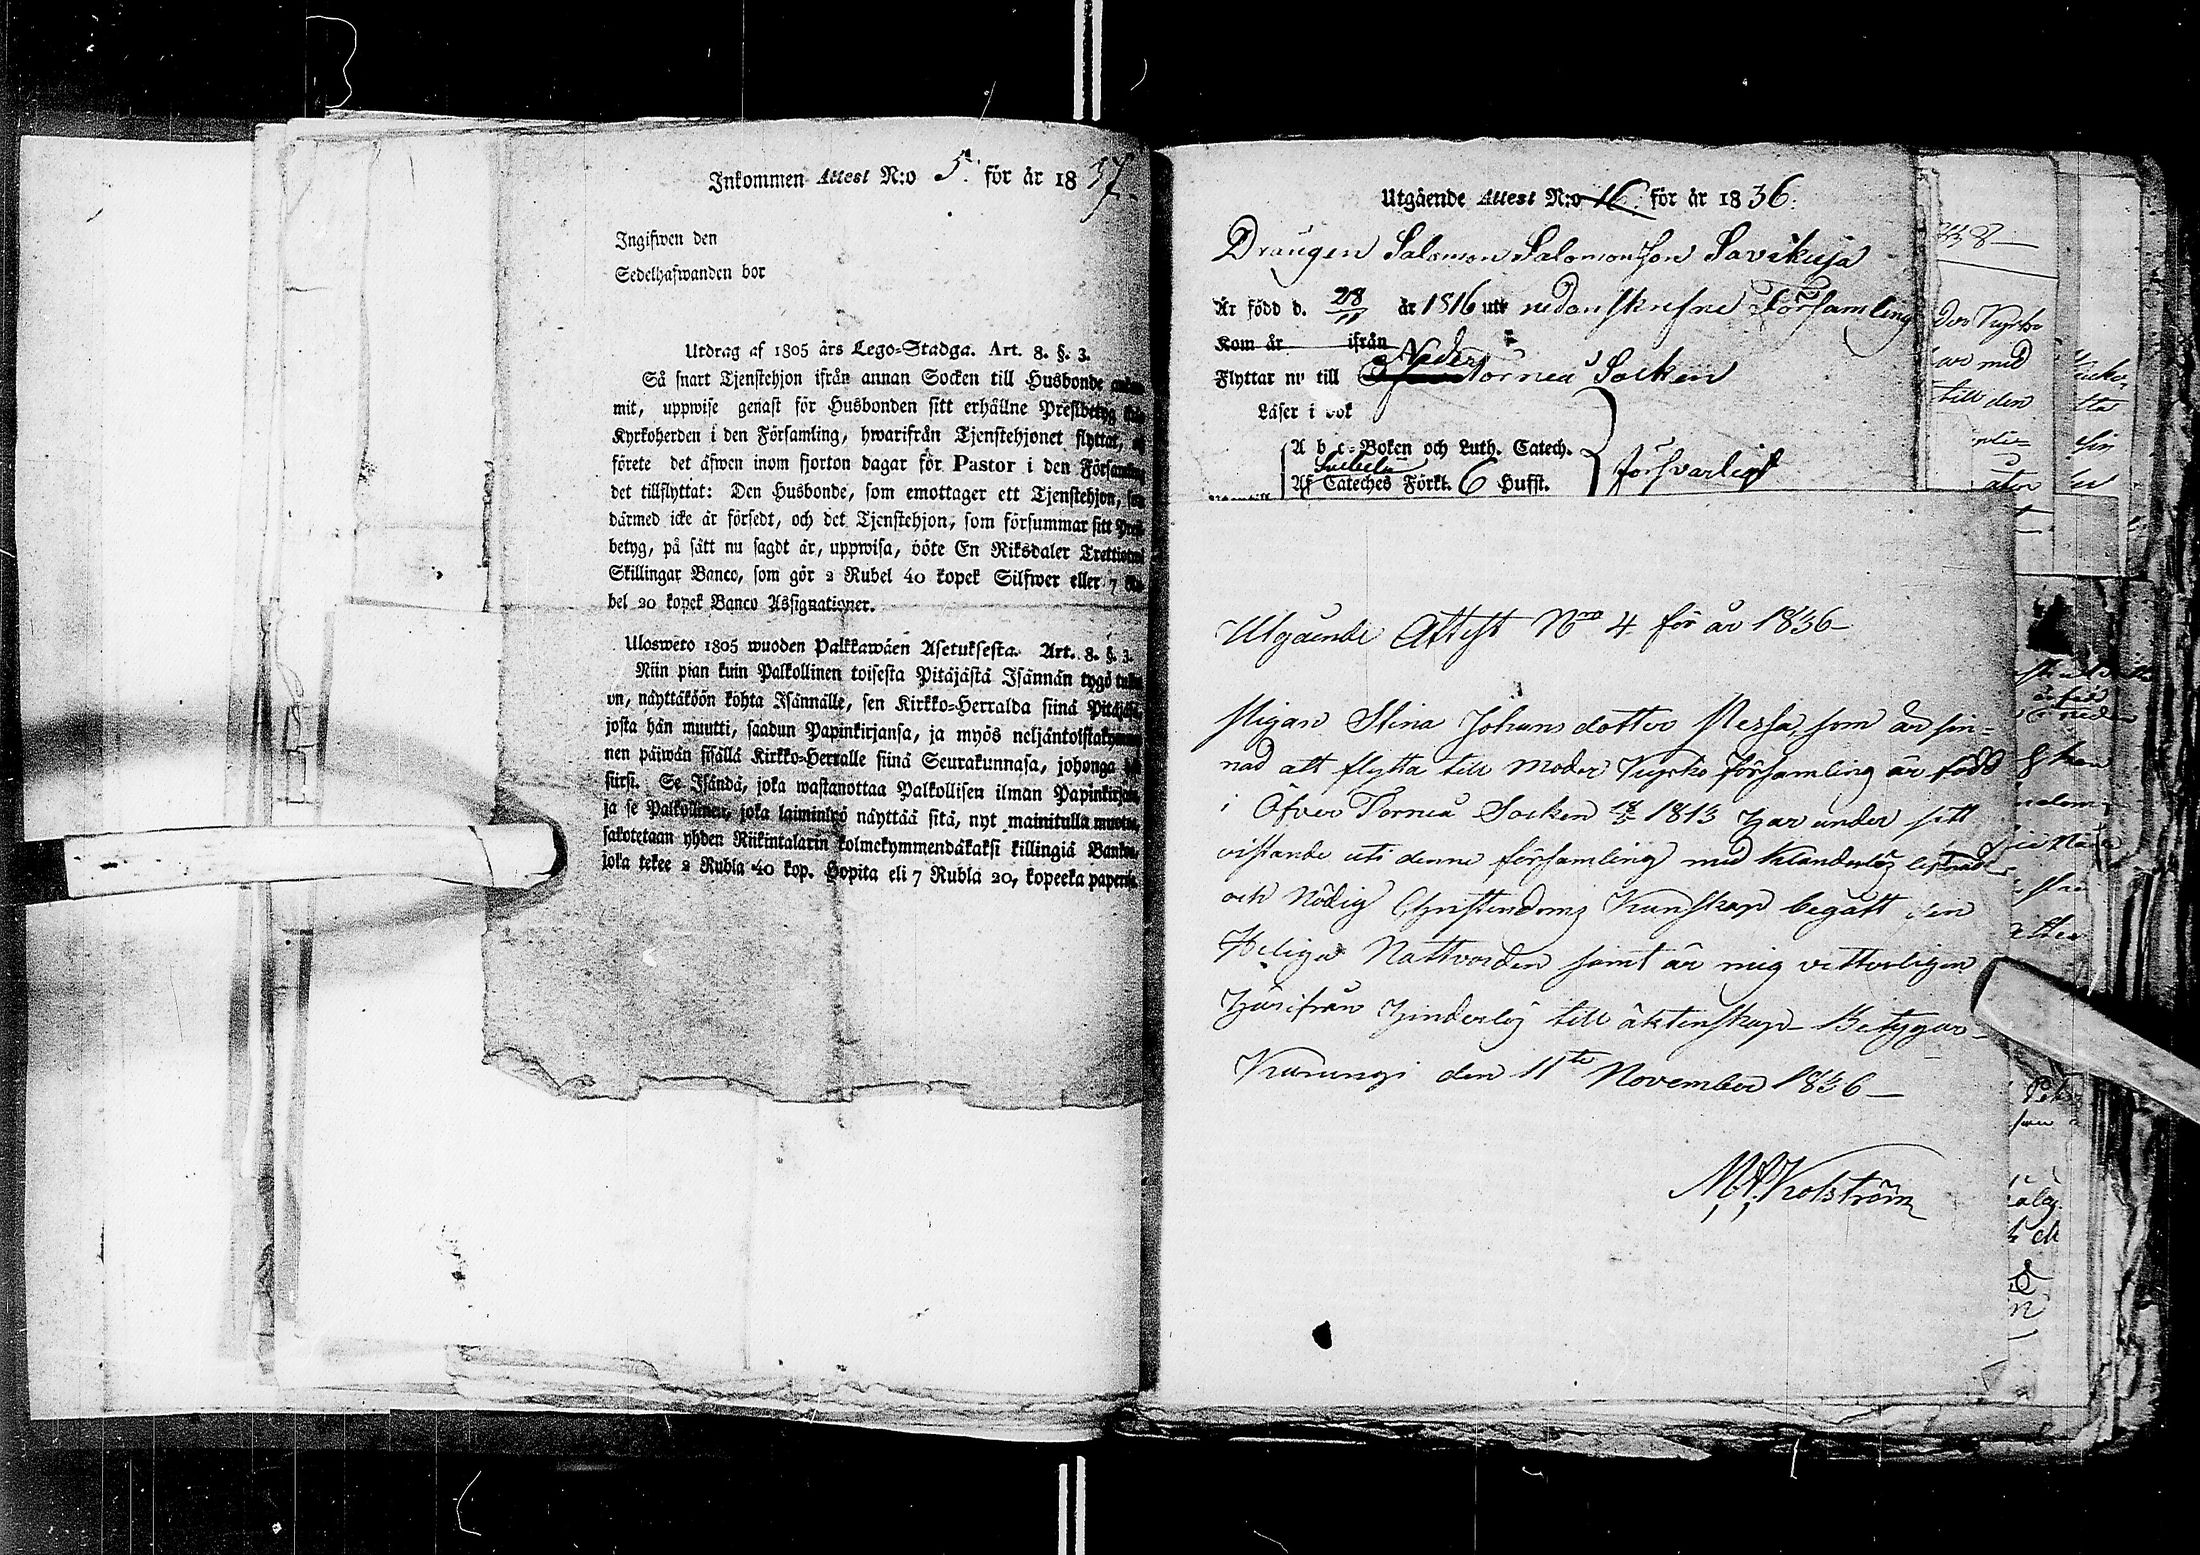 Inkommen Attest N:o 5. för år 1837.
Ingifwen den
Sedelhafwanden bor
Utdrag af 1805 års Lego-Stadga. Art. 8. §. 3.
Så snart Tjenstehjon ifrån annan Socken till Husbonde
mit, uppwise genast för Husbonden sitt erhållne Prestbetyg
Kyrkoherden i den Församling, hwarifrån Tjenstehjonet flyttat,
förete det äfwen inom fjorton dagar för Pastor i den Församling
det tillflyttat: Den Husbonde, som emottager ett Tjenstehjon, som
därmed icke är försedt, och det Tjenstehjon, som försummar sitt
betyg, på sätt nu sagdt är, uppwisa, böte En Riksdaler Trettiotwå
Skillingar Banco, som gör 2 Rubel 40 kopek Silfwer eller 7
bel 20 kopek Banco Assignationer.
Ulosweto 1805 wuoden Palkkawäen Asetuksesta. Art. 8. §. 3.
Niin pian kuin Palkollinen toisesta Pitäjästä Isännän tygö
on, näyttäköön kohta Isännälle, sen Kirkko-Herralda siinä
josta hän muutti, saadun Papinkirjansa, ja myös neljäntoistakymme
nen päiwän sisällä Kirkko-Herralle siinä Seurakunnasa, johonga
siirsi. Se Isändä, joka wastanottaa Palkollisen ilman Papinkirjata,
ja se Palkollinen, joka laiminlyö näyttää sitä, nyt mainitulla muotoa,
sakotetaan yhden Riikintalarin kolmekymmendäkaksi killingiä Banko,
joka tekee 2 Rubla 40 kop. Hopita eli 7 Rubla 20, kopeeka paperia.
Utgående Attest N:o 16. för år 1836.
Drängen Salomon Salomonsson Savikuja
Är född d. 28/11 år 1816 uti nedanskrefne Församling
Kom år ifrån
Flyttar nu till Neder Torneå Socken
Läser i bok
A b c-Boken och Luth. Catech.
Af Cateches Förkl. 6 Hufst.
försvarligt
Utgående Attest Nro 4 för år 1836
Pigan Stina Johansdotter som är sin-
nad att flytta till Moder Kyrko församling är född
i Öfver Torneå Socken 1813 har under sitt
vistande uti denna församling med Klanderlös lefnad
och Nödig Christendoms Kunskap begått den
Heliga Nattvarden samt är mig vetterligen
härifrån hinderlös till äktenskap Betygar
Karungi den 11te November 1836
M. A. Kolström